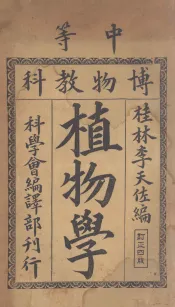 中等
博物教科
桂林李天佐編
訂正四版
植物學
科學會編譯部刊行